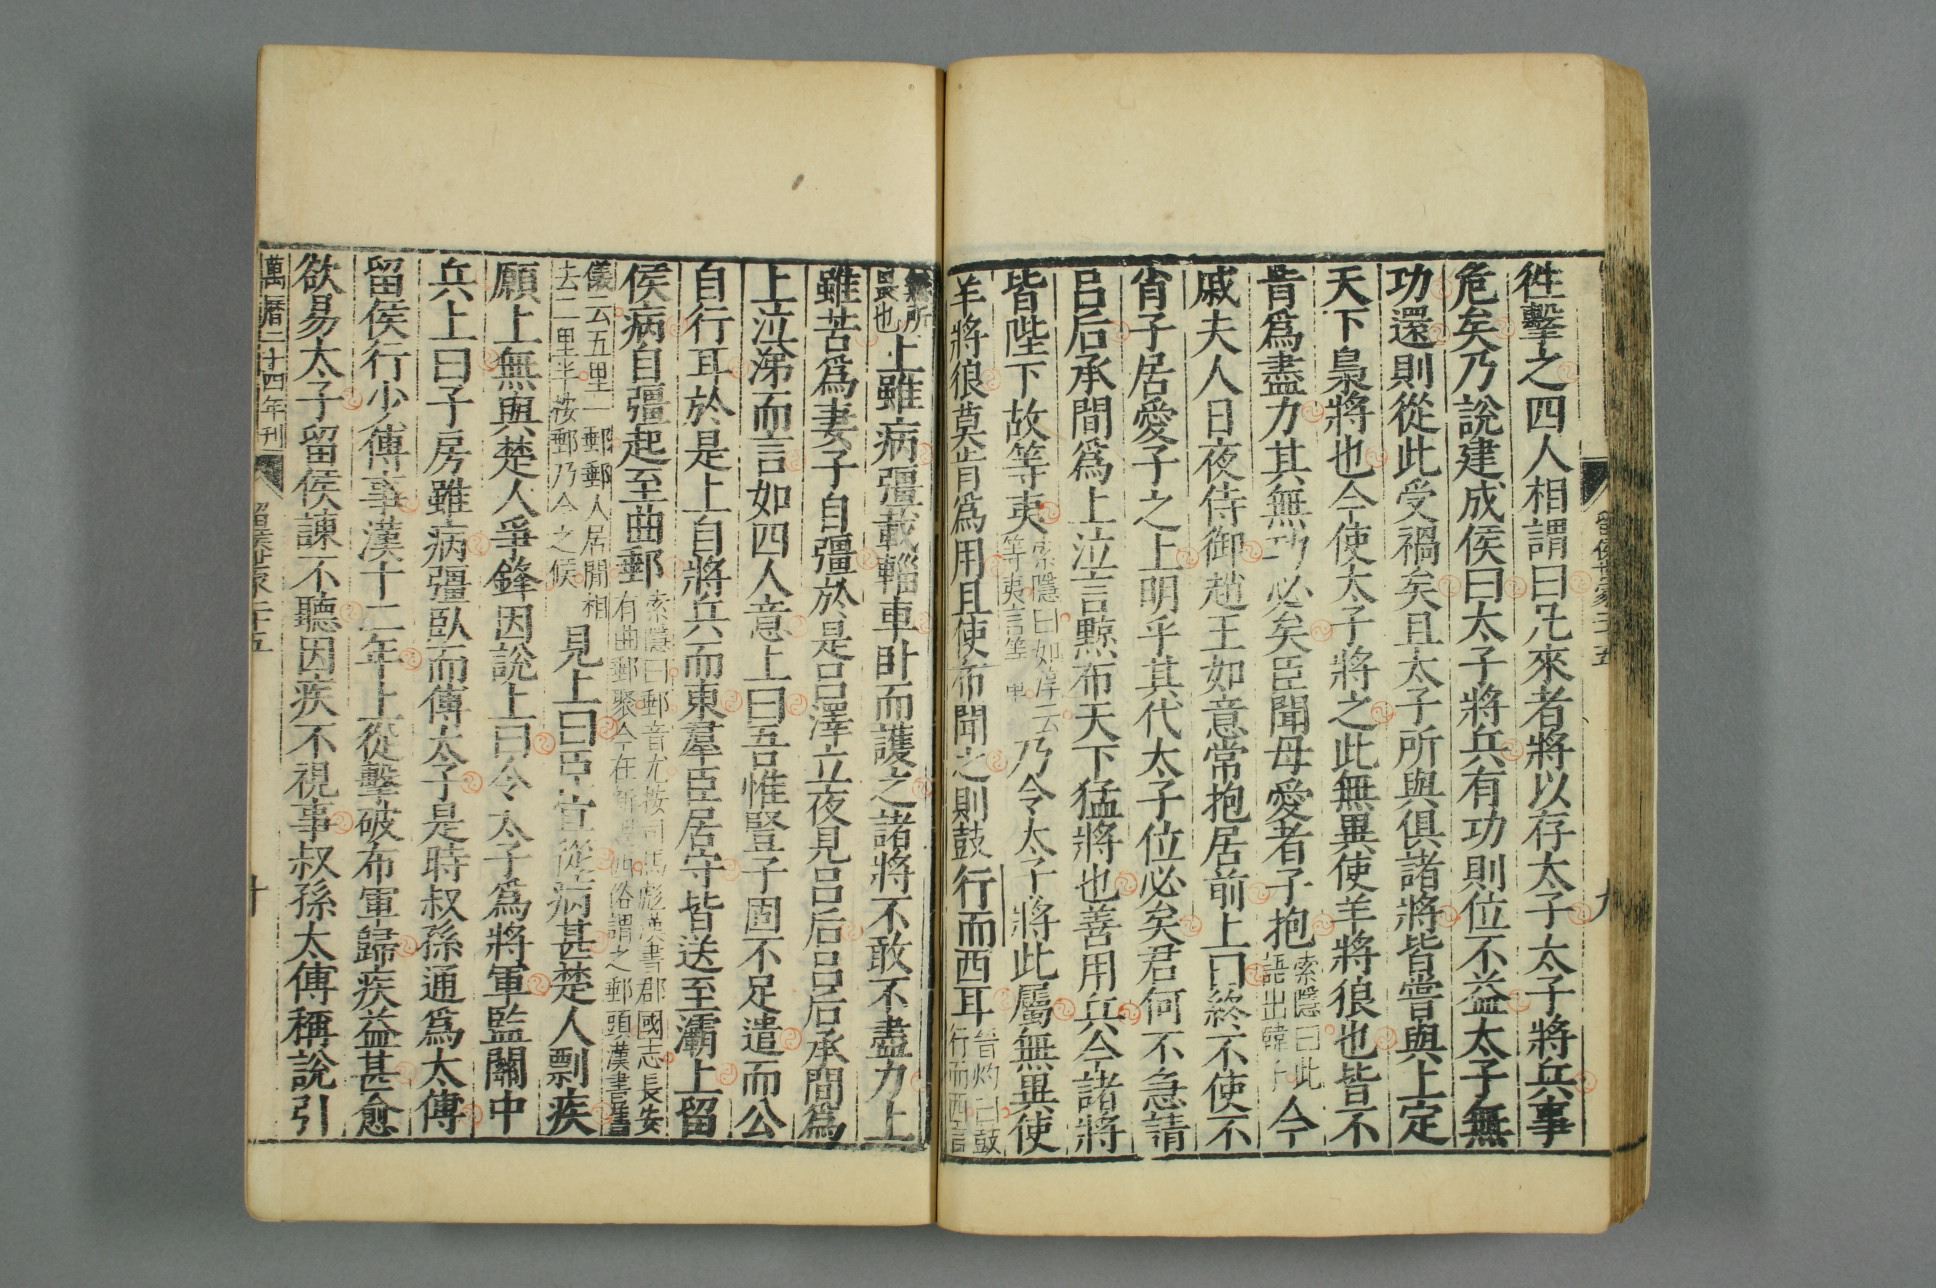 徃擊之四人相謂曰凢來者將以存太子太子將兵事
危矣乃說建成侯曰太子將兵有功則位不益太子無
功還則從此受禍矣且太子所與俱諸將皆嘗與上定
天下梟將也今使太子將之此無異使羊將狼也皆不
肯爲盡力其無功必矣臣聞母愛者子抱索隱曰此語出韓子今
戚夫人日夜侍御趙王如意常抱居前上曰終不使不
肖子居愛子之上明乎其代太子位必矣君何不急請
呂后承間爲上泣言黥布天下猛將也善用兵今諸將
皆陛下故等夷索隱曰如淳云等夷言等軰乃令太子將此屬無異使
羊將狼莫肯爲用且使布聞之則鼓行而西耳晉灼曰鼓行而西言
無所畏也上雖病彊載輜車卧而護之諸將不敢不盡力上
雖苦爲妻子自彊於是呂澤立夜見呂后呂后承間爲
上泣涕而言如四人意上曰吾惟豎子固不足遣而公
自行耳於是上自將兵而東羣臣居守皆送至灞上留
侯病自彊起至曲郵索隱曰郵音尤按司馬彪漢書郡國志長安有曲郵聚今在新豐西俗謂之郵頭漢書舊
儀云五里一郵郵人居間相去二里半按郵乃今之候見上曰臣宜從病甚楚人剽疾
願上無與楚人爭鋒因說上曰令太子爲將軍監關中
兵上曰子房雖病彊臥而傅太子是時叔孫通爲太傅
留侯行少傅事漢十二年上從擊破布軍歸疾益甚愈
欲易太子留侯諫不聽因疾不視事叔孫太傅稱說引
留侯世家二十五
九
萬曆二十四年刊
留侯世家二十五
十